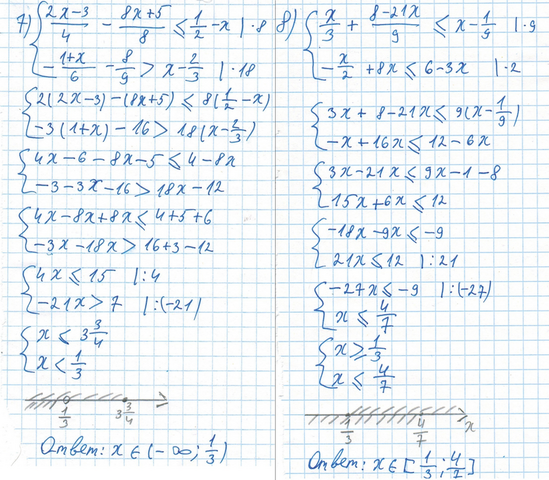 7) { (2x-3)/4 - (8x+5)/8 ⩽ 1/2 - x |·8
-(1+x)/6 - 8/9 > x - 2/3 |·18
{ 2(2x-3)-(8x+5) ⩽ 8(1/2 - x)
-3(1+x)-16 > 18(x - 2/3)
{ 4x-6-8x-5 ⩽ 4-8x
-3-3x-16 > 18x-12
{ 4x-8x+8x ⩽ 4+5+6
-3x-18x > 16+3-12
{ 4x ⩽ 15 |:4
-21x > 7 |:(-21)
{ x ⩽ 3 3/4
x < 1/3
1/3 3 3/4
Ответ: x ∈ (-∞; 1/3)
8) { x/3 + (8-21x)/9 ⩽ x - 1/9 |·9
-x/2 + 8x ⩽ 6-3x |·2
{ 3x+8-21x ⩽ 9(x - 1/9)
-x+16x ⩽ 12-6x
{ 3x-21x ⩽ 9x-1-8
15x+6x ⩽ 12
{ -18x-9x ⩽ -9
21x ⩽ 12 |:21
{ -27x ⩽ -9 |:(-27)
x ⩽ 4/7
{ x ⩾ 1/3
x ⩽ 4/7
1/3 4/7 x
Ответ: x ∈ [1/3; 4/7]